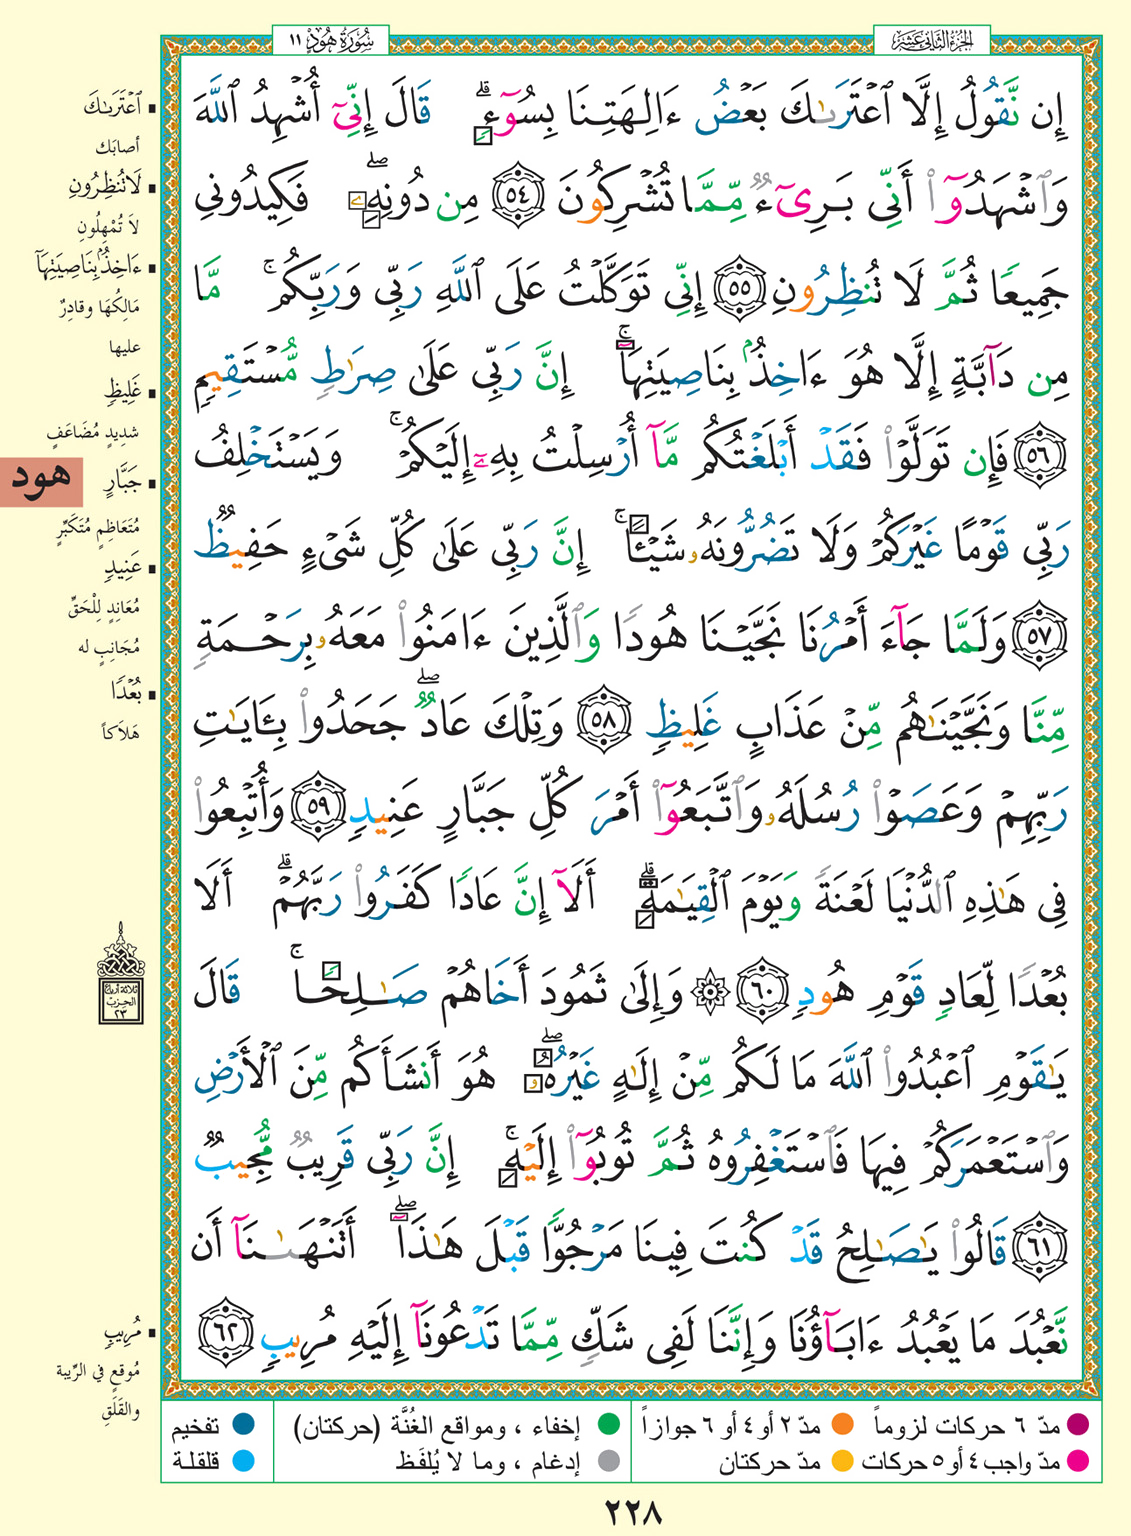 سُورَةُ هُودٍ ١١
الجُزءُ الثَّانِي عَشَرَ
إِن نَّقُولُ إِلَّا ٱعْتَرَىٰكَ بَعْضُ ءَالِهَتِنَا بِسُوٓءٍ ۗ قَالَ إِنِّىٓ أُشْهِدُ ٱللَّهَ
وَٱشْهَدُوٓا۟ أَنِّى بَرِىٓءٌ مِّمَّا تُشْرِكُونَ ٥٤ مِن دُونِهِۦ ۖ فَكِيدُونِى
جَمِيعًا ثُمَّ لَا تُنظِرُونِ ٥٥ إِنِّى تَوَكَّلْتُ عَلَى ٱللَّهِ رَبِّى وَرَبِّكُم ۚ مَّا
مِن دَآبَّةٍ إِلَّا هُوَ ءَاخِذٌۢ بِنَاصِيَتِهَآ ۚ إِنَّ رَبِّى عَلَىٰ صِرَٰطٍ مُّسْتَقِيمٍ
٥٦ فَإِن تَوَلَّوْا۟ فَقَدْ أَبْلَغْتُكُم مَّآ أُرْسِلْتُ بِهِۦٓ إِلَيْكُمْ ۚ وَيَسْتَخْلِفُ
رَبِّى قَوْمًا غَيْرَكُمْ وَلَا تَضُرُّونَهُۥ شَيْـًٔا ۚ إِنَّ رَبِّى عَلَىٰ كُلِّ شَىْءٍ حَفِيظٌ
٥٧ وَلَمَّا جَآءَ أَمْرُنَا نَجَّيْنَا هُودًا وَٱلَّذِينَ ءَامَنُوا۟ مَعَهُۥ بِرَحْمَةٍ
مِّنَّا وَنَجَّيْنَٰهُم مِّنْ عَذَابٍ غَلِيظٍ ٥٨ وَتِلْكَ عَادٌ ۖ جَحَدُوا۟ بِـَٔايَٰتِ
رَبِّهِمْ وَعَصَوْا۟ رُسُلَهُۥ وَٱتَّبَعُوٓا۟ أَمْرَ كُلِّ جَبَّارٍ عَنِيدٍ ٥٩ وَأُتْبِعُوا۟
فِى هَٰذِهِ ٱلدُّنْيَا لَعْنَةً وَيَوْمَ ٱلْقِيَٰمَةِ ۗ أَلَآ إِنَّ عَادًا كَفَرُوا۟ رَبَّهُمْ ۗ أَلَا
بُعْدًا لِّعَادٍ قَوْمِ هُودٍ ٦٠ ۞ وَإِلَىٰ ثَمُودَ أَخَاهُمْ صَٰلِحًا ۚ قَالَ
يَٰقَوْمِ ٱعْبُدُوا۟ ٱللَّهَ مَا لَكُم مِّنْ إِلَٰهٍ غَيْرُهُۥ ۖ هُوَ أَنشَأَكُم مِّنَ ٱلْأَرْضِ
وَٱسْتَعْمَرَكُمْ فِيهَا فَٱسْتَغْفِرُوهُ ثُمَّ تُوبُوٓا۟ إِلَيْهِ ۚ إِنَّ رَبِّى قَرِيبٌ مُّجِيبٌ
٦١ قَالُوا۟ يَٰصَٰلِحُ قَدْ كُنتَ فِينَا مَرْجُوًّا قَبْلَ هَٰذَآ ۖ أَتَنْهَىٰنَآ أَن
نَّعْبُدَ مَا يَعْبُدُ ءَابَآؤُنَا وَإِنَّنَا لَفِى شَكٍّ مِّمَّا تَدْعُونَآ إِلَيْهِ مُرِيبٍ ٦٢
ٱعْتَرَىٰكَ
أصابَك
لَا تُنظِرُونِ
لَا تُمْهِلُونِ
ءَاخِذٌۢ بِنَاصِيَتِهَآ
مَالِكُهَا وقادِرٌ
عليها
غَلِيظٍ
شدِيدٍ مُضَاعَفٍ
جَبَّارٍ
هود
مُتَعَاظِمٍ مُتَكَبِّرٍ
عَنِيدٍ
مُعَانِدٍ لِلْحَقِّ
مُجَانِبٍ له
بُعْدًا
هَلَاكاً
ثلاثة أرباع
الحزب
٢٣
مُرِيبٍ
مُوقعٍ في الرِّيبة
والقَلَقِ
مدّ ٦ حركات لزوماً
مدّ ٢ أو ٤ أو ٦ جوازاً
إخفاء ، ومواقع الغُنَّة (حركتان)
تفخيم
مدّ واجب ٤ أو ٥ حركات
مدّ حركتان
إدغام ، وما لا يُلفَظ
قلقلة
٢٢٨